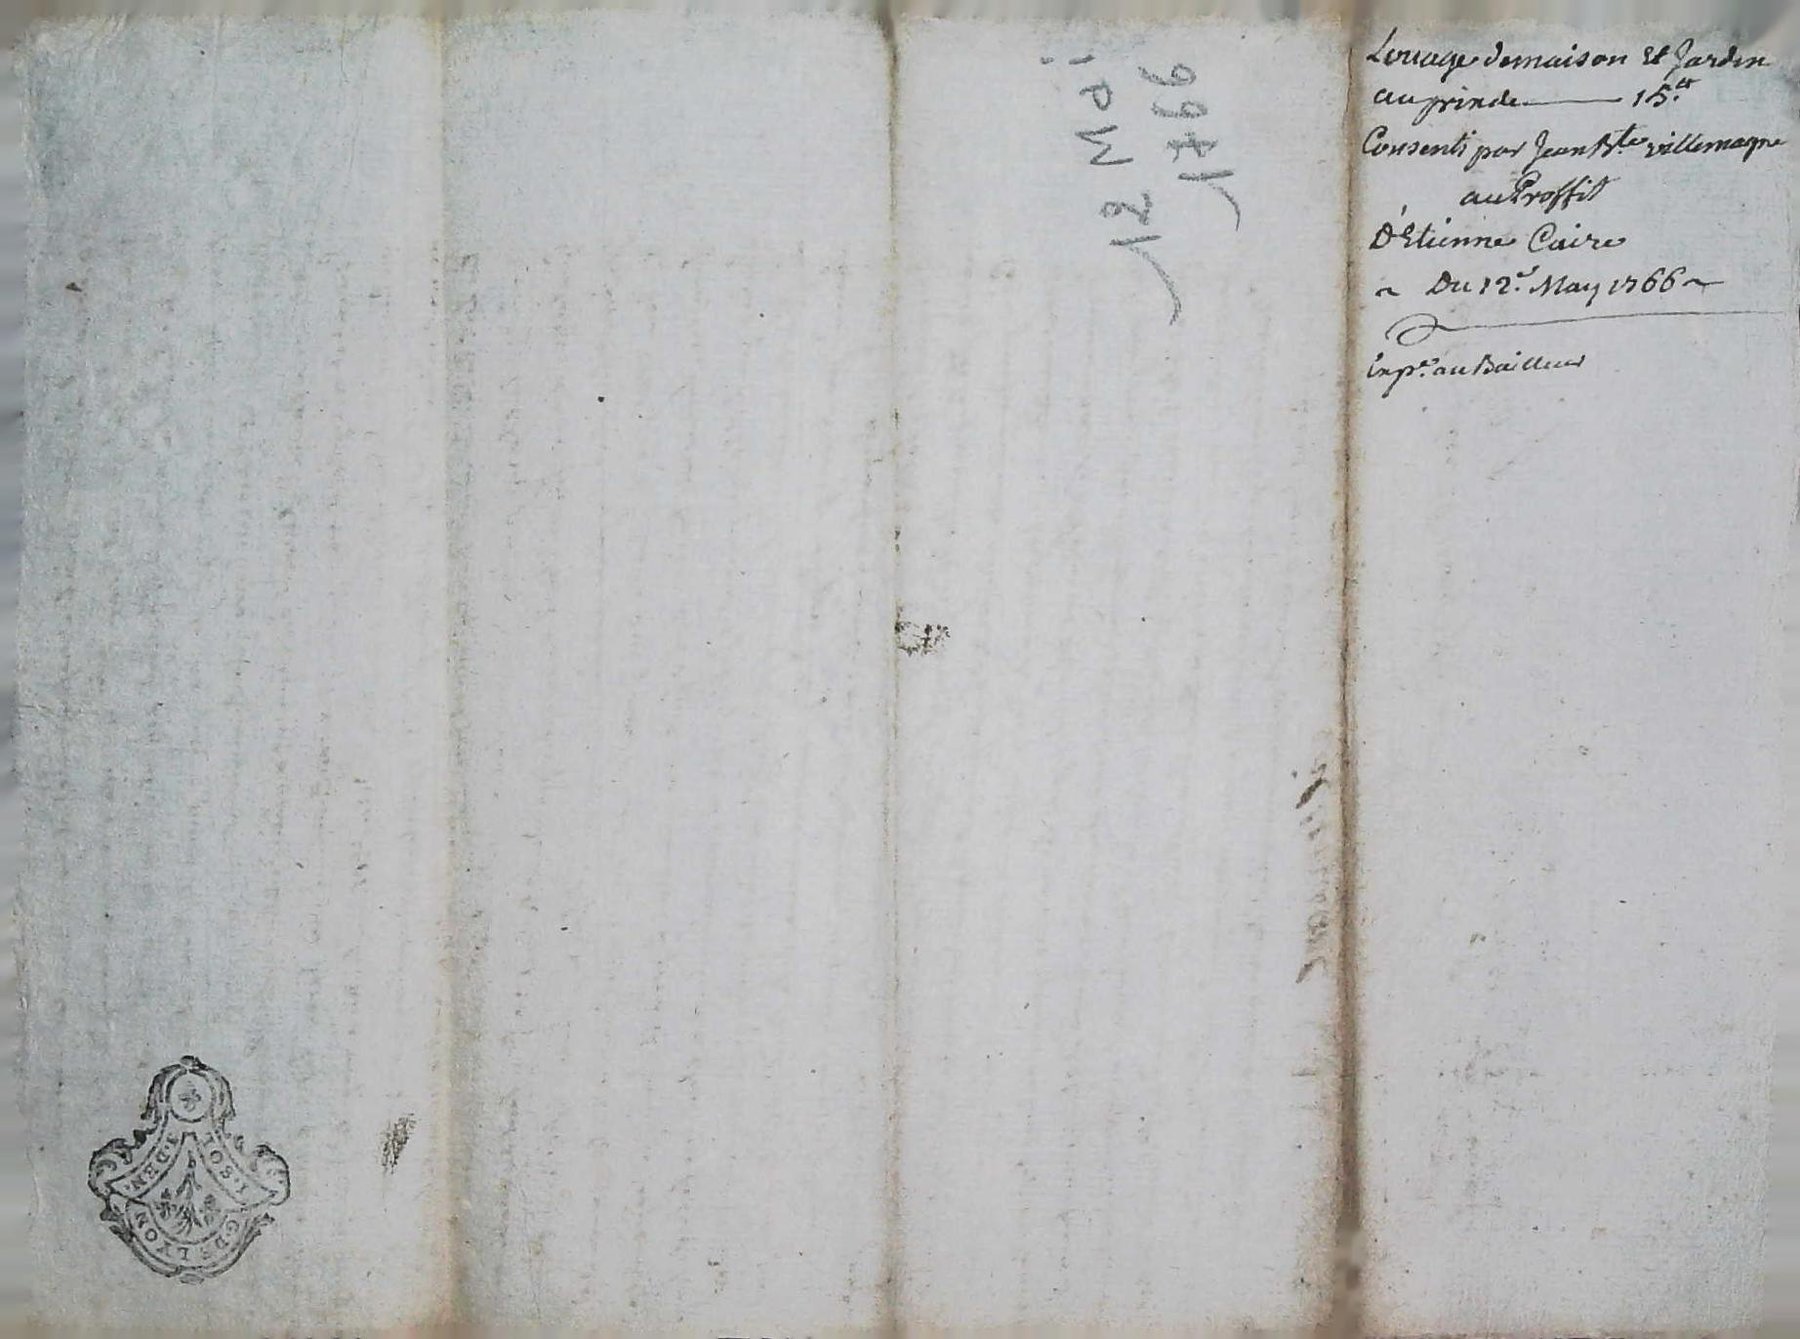 Louage demaison Et Jardin
au prinde — 15.tt
Consenti par Jean Bte villemagne
au Proffit
D'Etienne Caire
~ Du 12.e May 1766 ~
Exp.on au Bailleur
12 Mai
1766
1 SOL.
4. DEN.
G. DE LYON